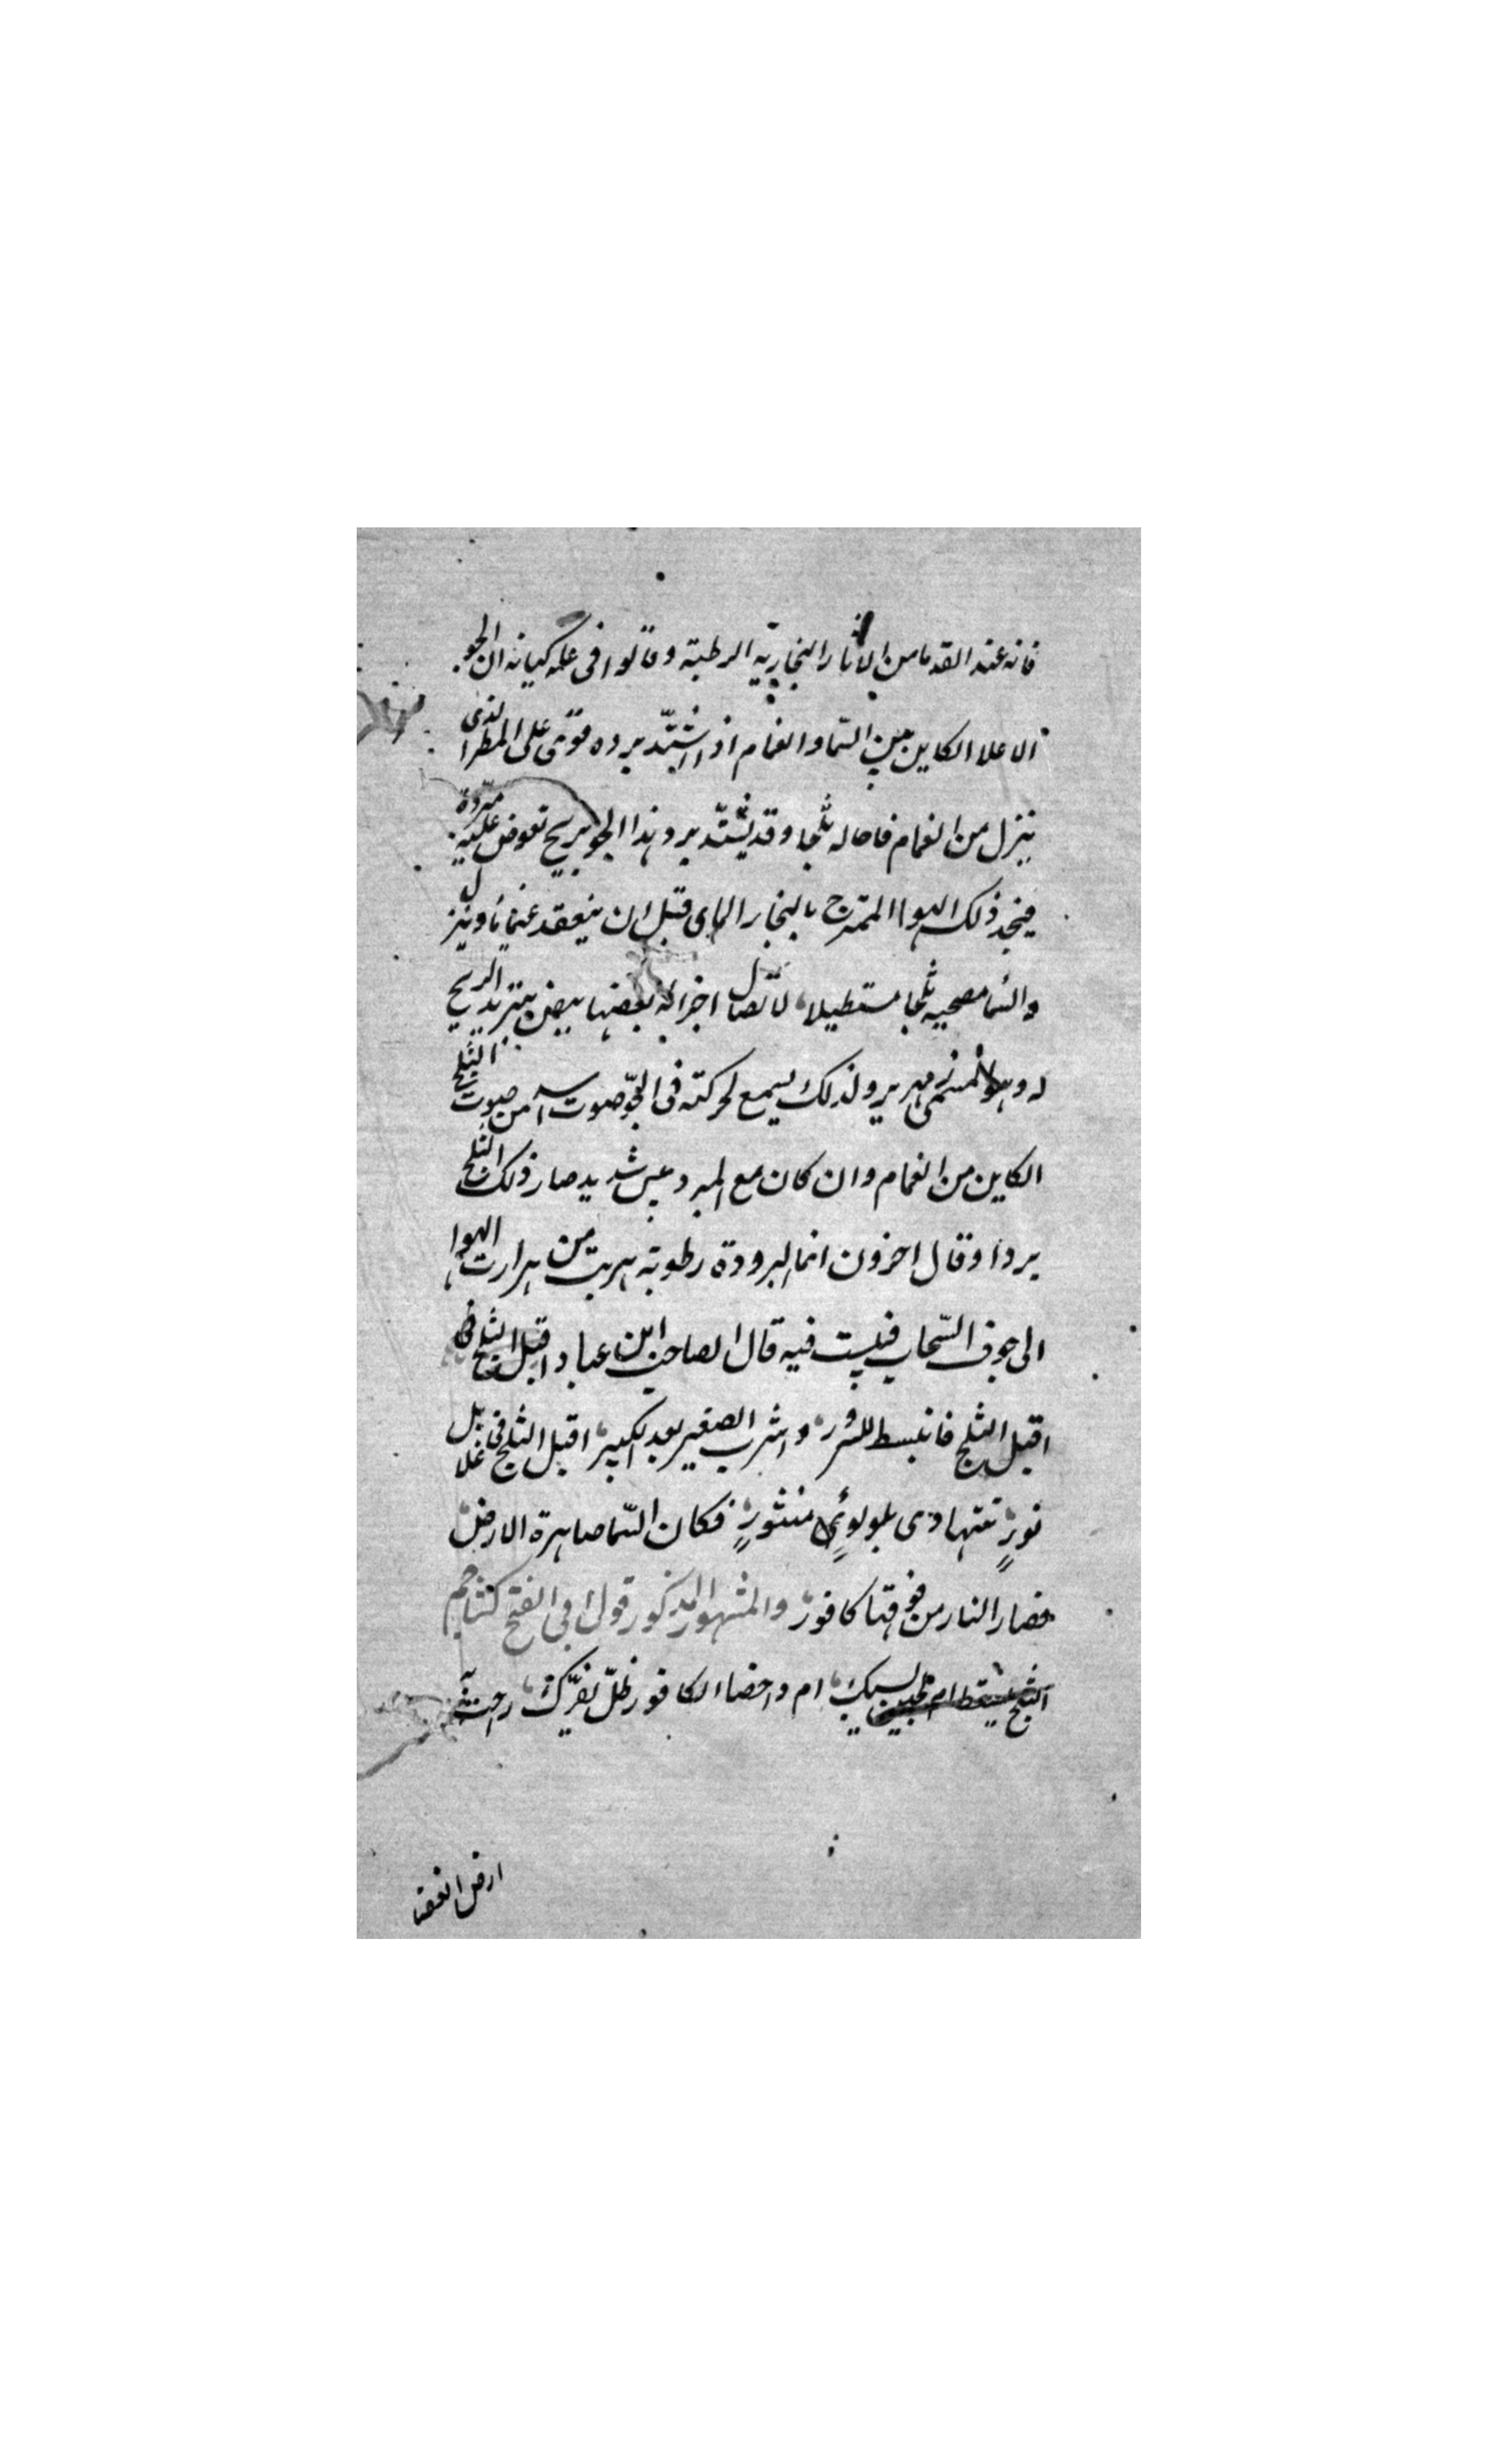 فانه عند القدما من الاثار البخاريه الرطبة وقالوا فى علة كيانه ان الجو
الاعلا الكاين بين السما والغمام اذا اشتد برده قوى على المطر الذى
ينزل من الغمام فاحاله ثلجا وقد يشتد برد هذا الجو بريح تعوض عليه مبردة
فيجمد ذلك الهوا الممتزج بالبخار الماى قبل ان ينعقد غماما وينزل
والسما مصحيه ثلجا مستطيلا لاتصال اجزاله بعضها ببعض بتبريد الريح
له وهو المسمى زمهرير ولذلك يسمع لحركته فى الجو صوت من صوت الثلج
الكاين من الغمام وان كان مع البرد يبس شديد صار ذلك الثلج
بردا وقال اخرون انما البرودة رطوبة هربت من حرارت الهوا
الى جوف السحاب فيبست فيه قال الصاحب ابن عباد اقبل الثلج فى
اقبل الثلج فانبسط للسرور واشرب الصغير بعد الكبير اقبل الثلج فى غلايل
نور تتهادى بلولوئ منثور فكان السما صاهرة الارض
فصار النار من فوقها كافور والمشهور المذكور قول ابى الفتح كشاجم
الثلج يسقط ام لجين يسبك ام ذا حصا الكافور ظل يفرك راحت به
ارض الفضا